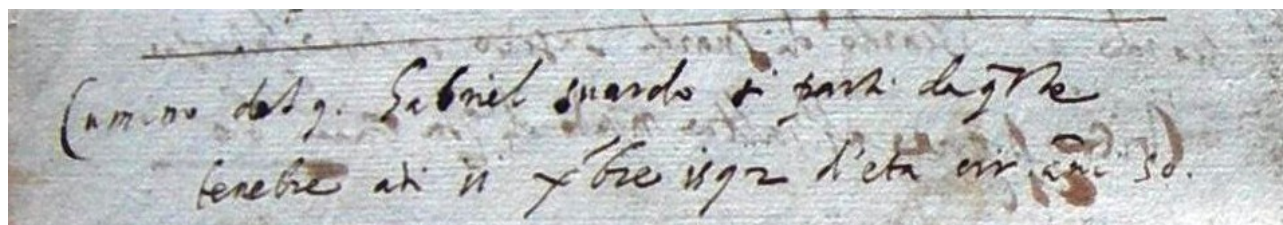 Cumino del q. Gabriel suardo si partì da q̃ste
tenebre adi ii xbre 1592 d'età cir. anni 50.